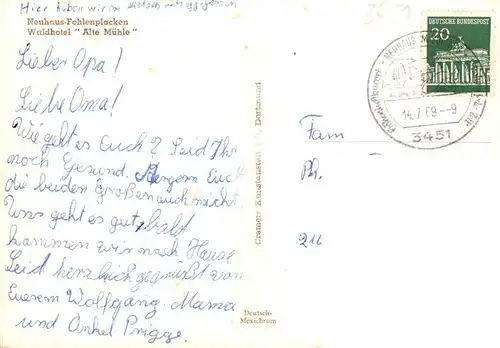 Hier haben wir am
Neuhaus-Fohlenplacken
Waldhotel " Alte Mühle "
Lieber Opa!
Liebe Oma!
Wie geht es Euch? Seid Ihr
noch Gesund. Ärgern Euch
die beiden Großen auch nicht.
Uns geht es gut, bald
kommen wir nach Hause
Seid herzlich gegrüßt von
Euerem Wolfgang. Mama
und Onkel Prigge.
Cramers Kunstanstalt Dortmund
Deutsch-
Mexichrom
DEUTSCHE BUNDESPOST
20
NEUHAUS
14.7.69--9
3451
Fam
216